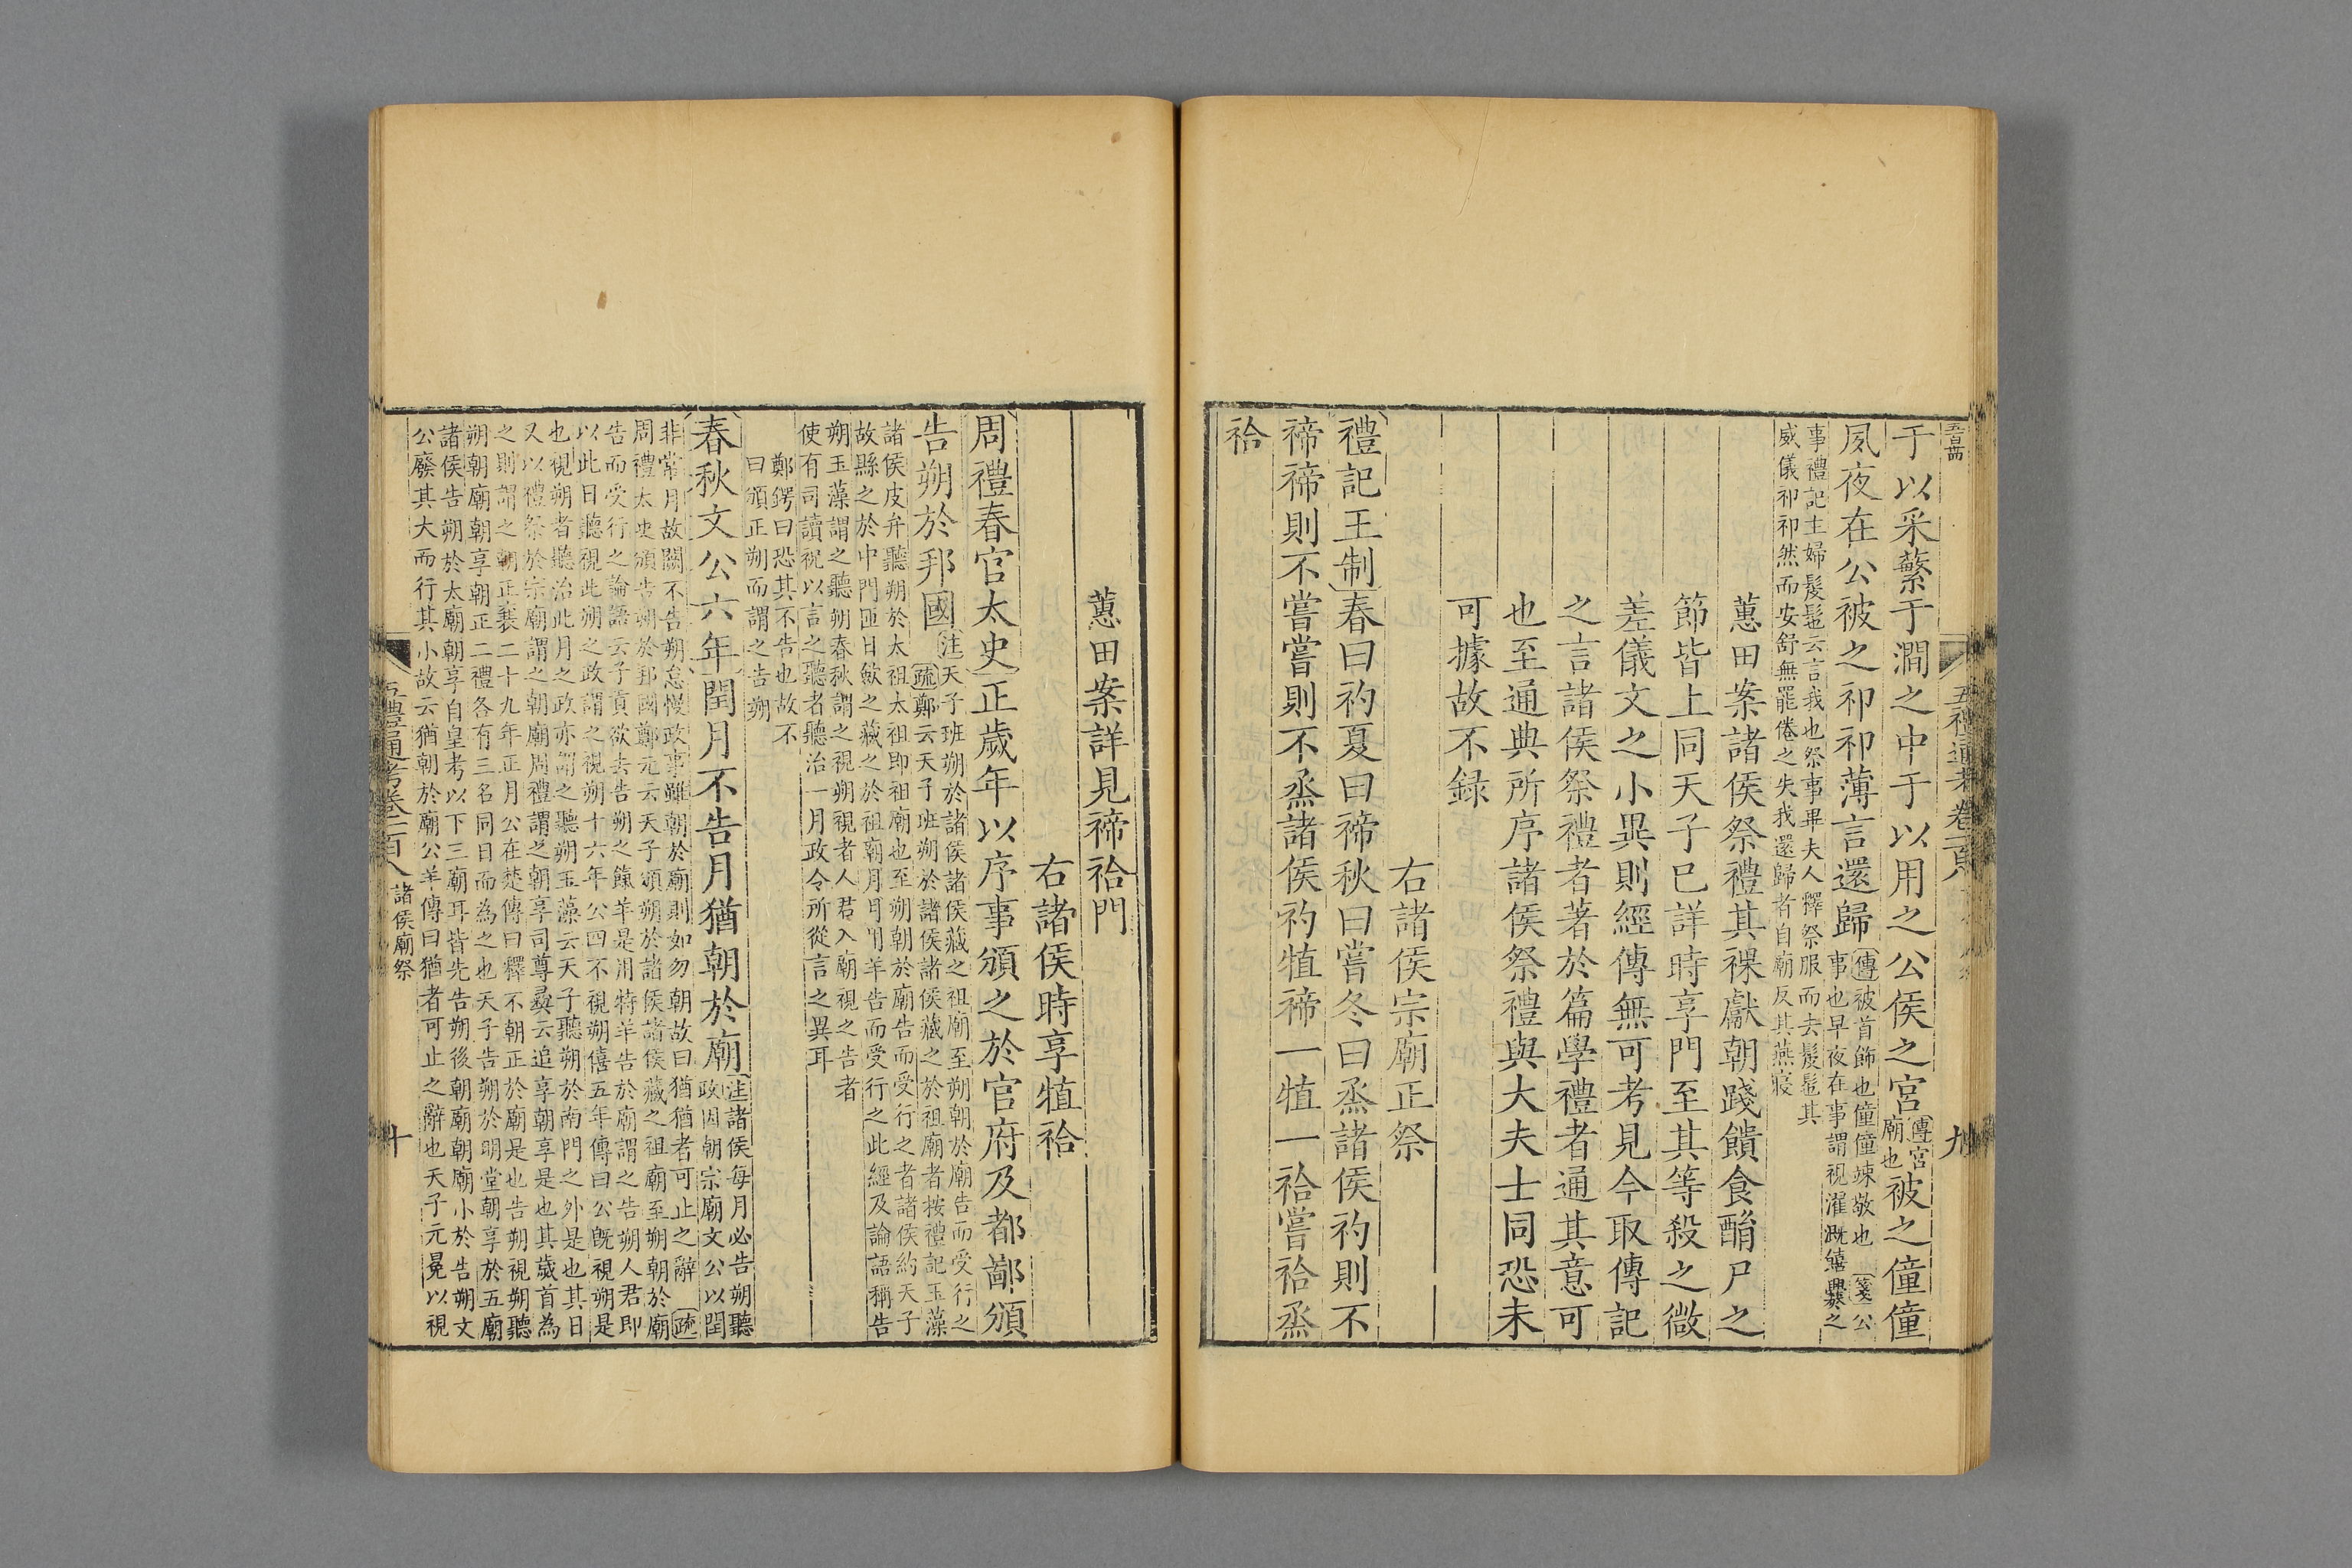 五禮通考卷一百八 九
于以采蘩于澗之中于以用之公侯之宮傳宮廟也被之僮僮
夙夜在公被之祁祁薄言還歸傳被首飾也僮僮竦敬也 箋公
事也早夜在事謂視濯溉饎爨之
事禮記主婦髲髢云言我也祭事畢夫人釋祭服而去髲髢其
威儀祁祁然而安舒無罷倦之失我還歸者自廟反其燕寢
蕙田案諸侯祭禮其祼獻朝踐饋食酳尸之
節皆上同天子已詳時享門至其等殺之微
差儀文之小異則經傳無可考見今取傳記
之言諸侯祭禮者著於篇學禮者通其意可
也至通典所序諸侯祭禮與大夫士同恐未
可據故不録
右諸侯宗廟正祭
禮記王制春曰礿夏曰禘秋曰嘗冬曰烝諸侯礿則不
禘禘則不嘗嘗則不烝諸侯礿犆禘一犆一祫嘗祫烝
祫
蕙田案詳見禘祫門
右諸侯時享犆祫
周禮春官太史正歲年以序事頒之於官府及都鄙頒
告朔於邦國注天子班朔於諸侯諸侯藏之祖廟至朔朝於廟告而受行之
疏鄭云天子班朔於諸侯諸侯藏之於祖廟者按禮記玉藻
諸侯皮弁聽朔於太祖太祖即祖廟也至朔朝於廟告而受行之者諸侯約天子
故縣之於中門匝日斂之藏之於祖廟月月用羊告而受行之此經及論語稱告
朔玉藻謂之聽朔春秋謂之視朔視者人君入廟視之告者
使有司讀祝以言之聽者聽治一月政令所從言之異耳
鄭鍔曰恐其不告也故不
曰頒正朔而謂之告朔
春秋文公六年閏月不告月猶朝於廟注諸侯每月必告朔聽
政因朝宗廟文公以閏
非常月故闕不告朔怠慢政事雖朝於廟則如勿朝故曰猶猶者可止之辭 疏
周禮太史頒告朔於邦國鄭元云天子頒朔於諸侯諸侯藏之祖廟至朔朝於廟
告而受行之論語云子貢欲去告朔之餼羊是用特羊告於廟謂之告朔人君即
以此日聽視此朔之政謂之視朔十六年公四不視朔僖五年傳曰公既視朔是
也視朔者聽治此月之政亦謂之聽朔玉藻云天子聽朔於南門之外是也其日
又以禮祭於宗廟謂之朝廟周禮謂之朝享司尊彝云追享朝享是也其歲首為
之則謂之朝正襄二十九年正月公在楚傳曰釋不朝正於廟是也告朔視朔聽
朔朝廟朝享朝正二禮各有三名同日而為之也天子告朔於明堂朝享於五廟
諸侯告朔於太廟朝享自皇考以下三廟耳皆先告朔後朝廟朝廟小於告朔文
公廢其大而行其小故云猶朝於廟公羊傳曰猶者可止之辭也天子元冕以視
五禮通考卷一百八 諸侯廟祭 十